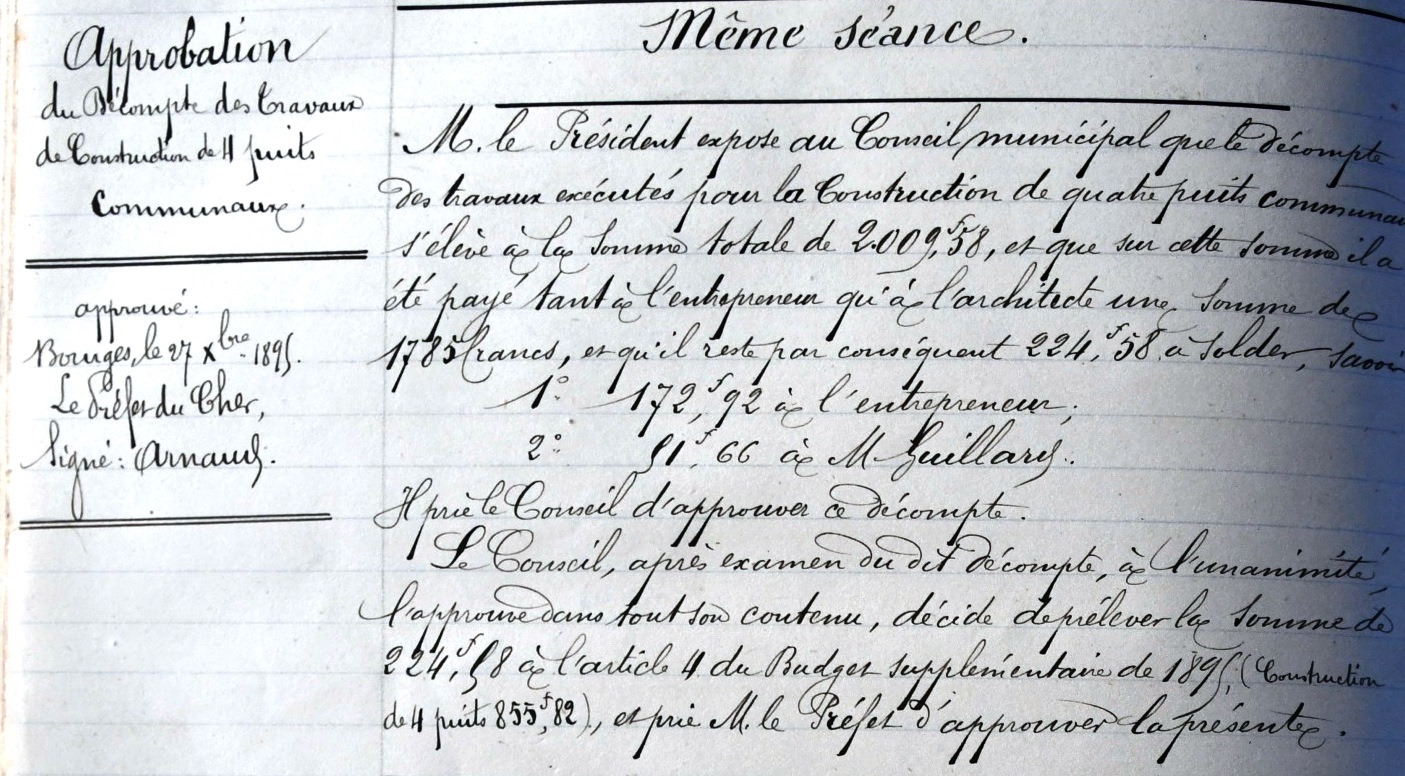 Approbation
du Décompte des travaux
de Construction de 4 puits
Communaux.
approuvé:
Bourges, le 27 Xbre 1895.
Le Préfet du Cher,
Signé: Arnaud.
Même séance.
M. le Président expose au Conseil municipal que le décompte
des travaux exécutés pour la Construction de quatre puits communau
s'élève à la somme totale de 2.009,f58, et que sur cette somme il a
été payé tant à l'entrepreneur qu'à l'architecte une somme de
1785 francs, et qu'il reste par conséquent 224,f58 à solder, savoir
1° 172,f92 à l'entrepreneur;
2° 51,f66 à M Guillard.
Il prie le Conseil d'approuver ce décompte.
Le Conseil, après examen du dit décompte, à l'unanimité,
l'approuve dans tout son contenu, décide de prélever la somme de
224,f58 à l'article 4 du Budget supplémentaire de 1895, (Construction
de 4 puits 855,f82), et prie M. le Préfet d'approuver la présente.